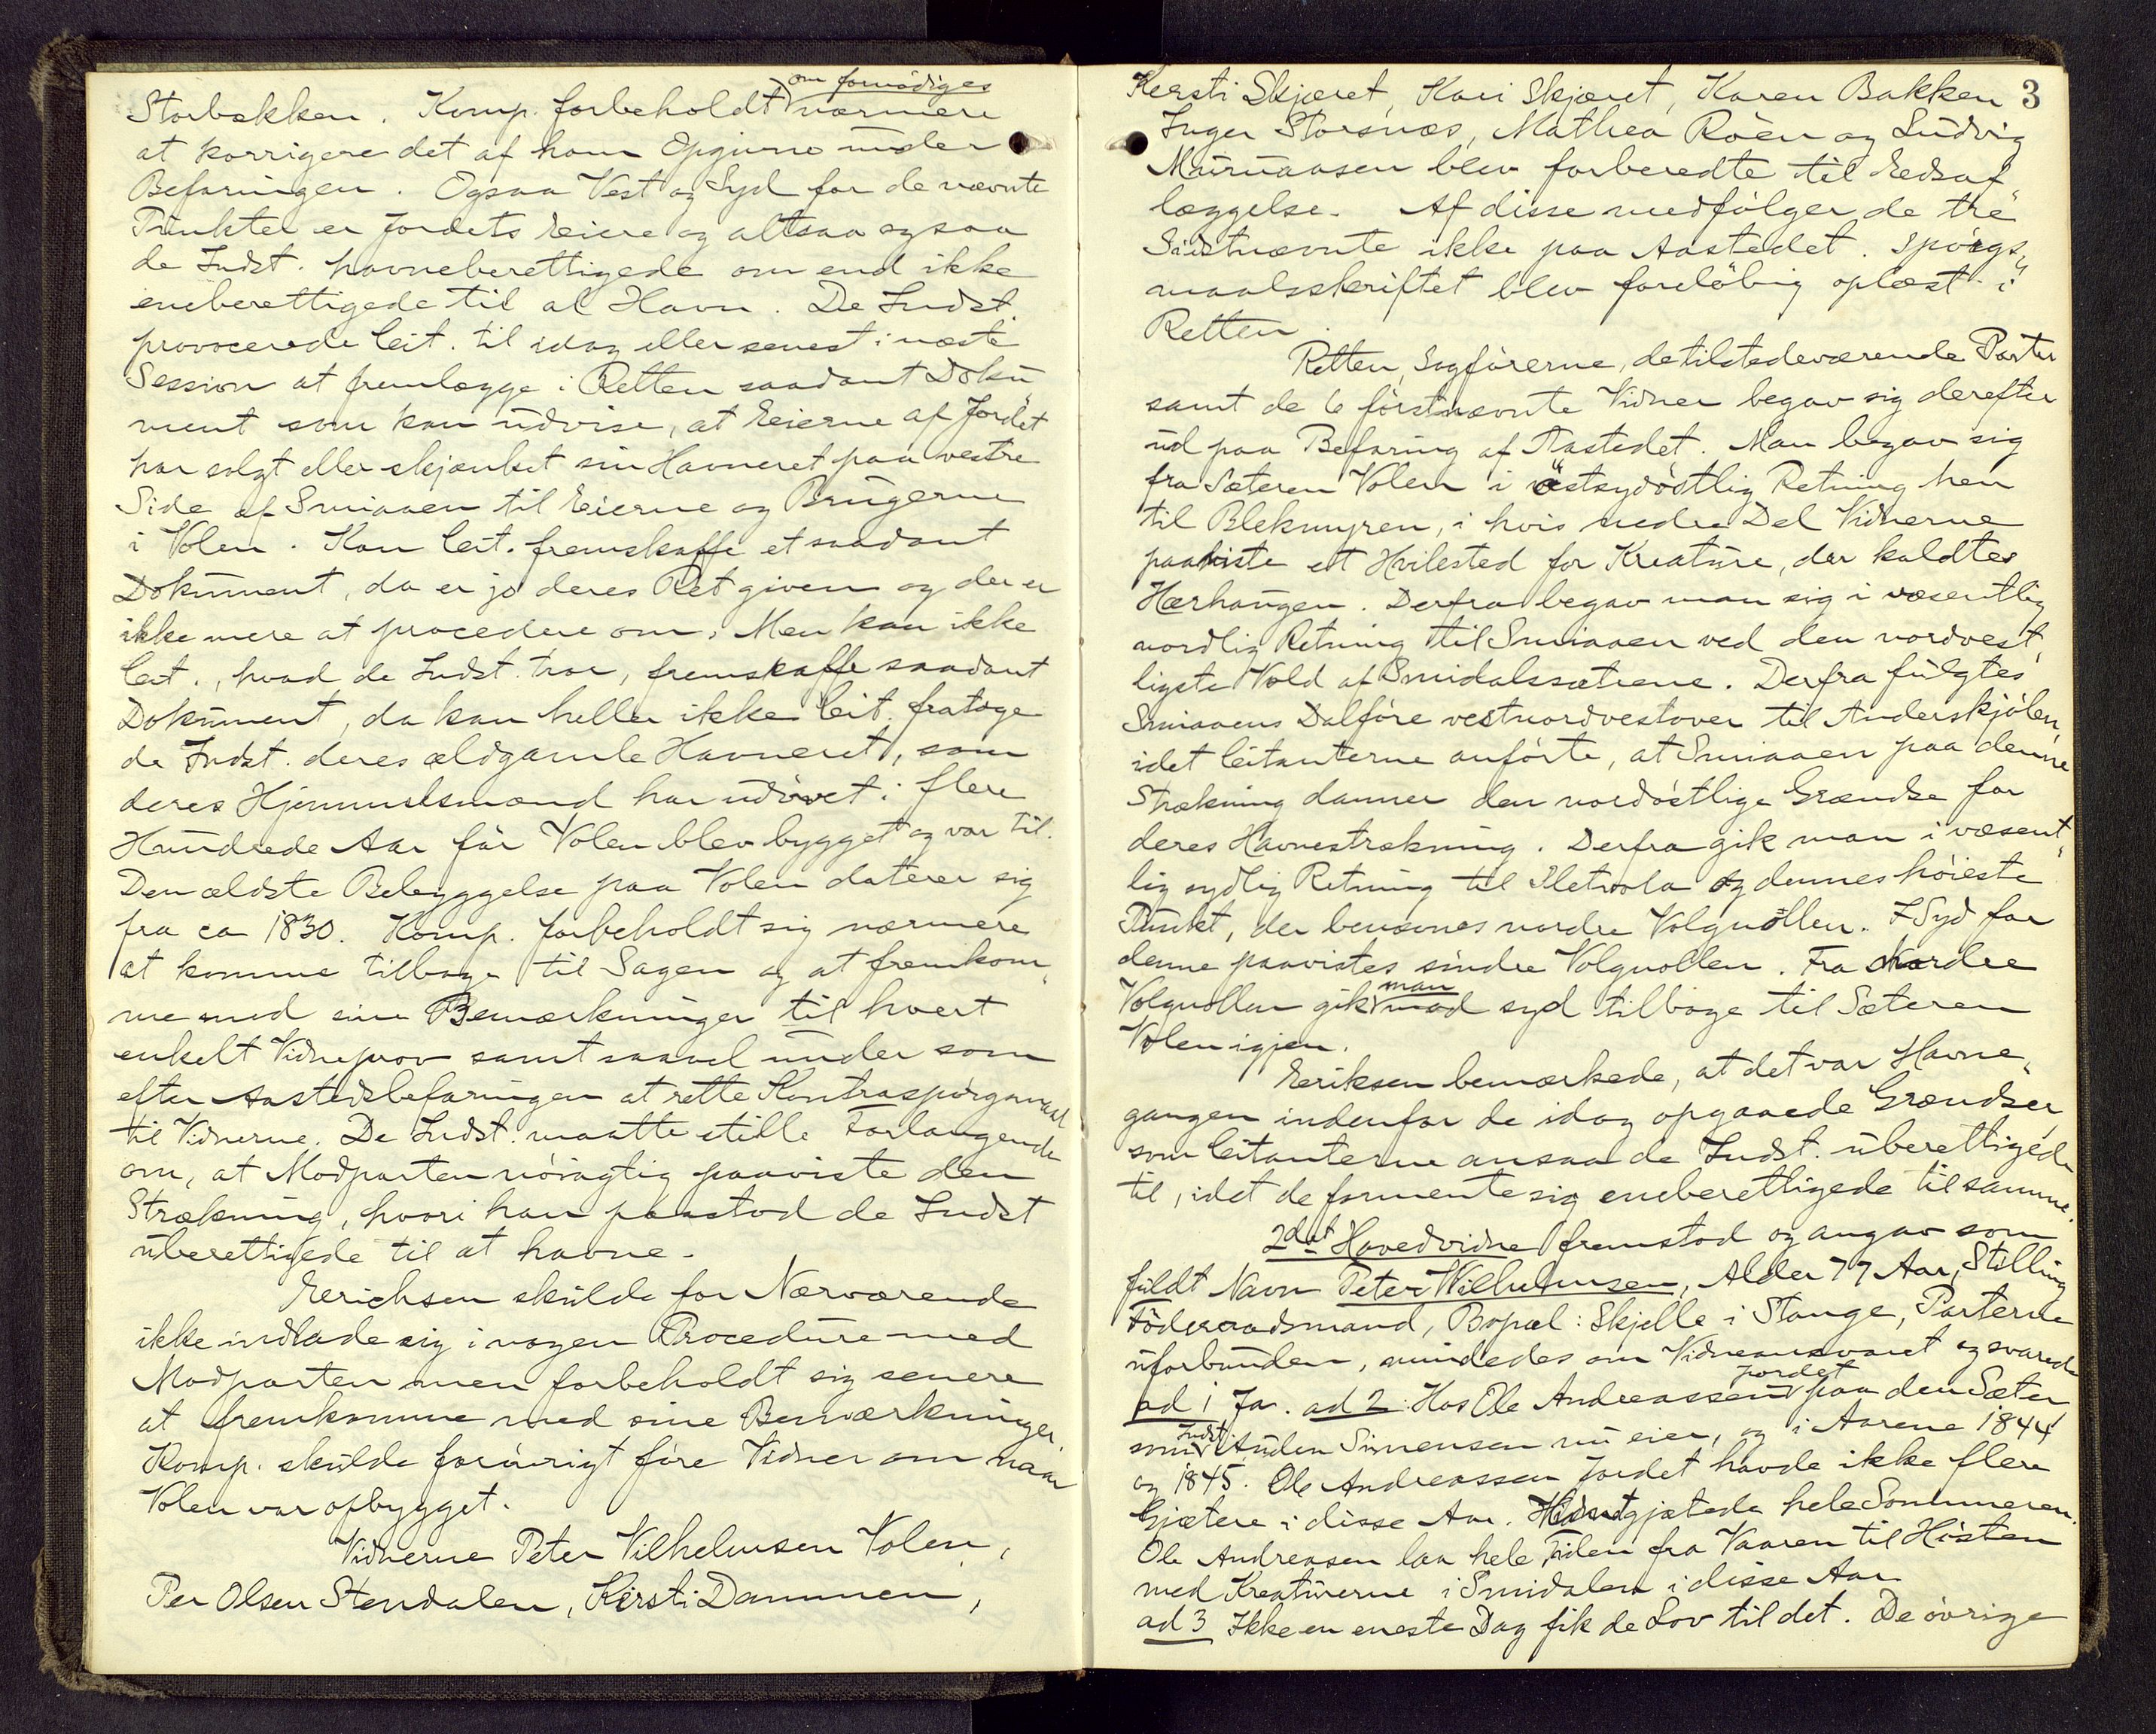 om fornødiges
Storbækken. Komp. forbeholdt nærmere
at korrigere det af ham Opgivne under
Befaringen. Ogsaa Vest og Syd for de nævnte
Punkter er Jordets Eiere og altsaa ogsaa
de Indst. havneberettigede om end ikke
eneberettigede til al Havn. De Indst.
provocerede Cit. til idag eller senest i næste
Session at fremlægge i Retten saadant Doku
ment som kan udvise, at Eierne af Jordet
har solgt eller skjænket sin Havneret paa vestre
Side af Smiaaen til Eierne og Brugerne
i Volen. Kan Cit. fremskaffe et saadant
Dokument, da er jo deres Ret given og der er
ikke mere at procedere om. Men kan ikke
Cit., hvad de Indst. tror, fremskaffe saadant
Dokument, da kan heller ikke Cit. fratage
de Indst. deres ældgamle Havneret, som
deres Hjemmelsmænd har udövet i flere
Hundrede Aar för Volen blev bygget og var til.
Den ældste Bebyggelse paa Volen daterer sig
fra ca 1830. Komp. forbeholdt sig nærmere
at komme tilbage til Sagen og at fremkom-
me med sine Bemærkninger til hvert
enkelt Vidneprov samt saavel under som
efter Aastedsbefaringen at rette Kontraspörgsmaal
til Vidnerne. De Indst. maatte stille Forlangende
om, at Modparten nöiagtig paaviste den
Strækning, hvori han paastod de Indst
uberettigede til at havne.
Erichsen skulde for Nærværende
ikke indlade sig i nogen Procedure med
Modparten men forbeholdt sig senere
at fremkomme med sine Bemærkninger.
Komp. skulde forövrigt före Vidner om naar
Volen var opbygget.
Vidnerne Peter Vilhelmsen Volen,
Per Olsen Stendalen, Kirsti Dammen,
3
Kersti Skjæret, Kari Skjæret, Karen Bakken
Inger Storsnæs, Mathea Röen og Ludvig
Muruaasen blev forberedte til Edsaf
læggelse. Af disse medfölger de tre
Sidstnævnte ikke paa Aastedet. Spörgs-
maalsskriftet blev forelöbig oplæst i
Retten.
Retten, Sagförerne, de tilstedeværende Parter
samt de 6 förstnævnte Vidner begav sig derefter
ud paa Befaring af Aastedet. Man begav sig
fra Sæteren Volen i östsydöstlig Retning hen
til Blekmyren, i hvis nedre Del Vidnerne
paaviste et Hvilested for Kreature, der kaldtes
Hærhaugen. Derfra begav man sig i væsentlig
nordlig Retning til Smiaaen ved den nordvest-
ligste Vold af Smidalssætrene. Derfra fulgtes
Smiaaens Dalföre vestnordvestover til Anderskjölen,
idet Citanterne anförte, at Smiaaen paa denne
Strækning danner den nordöstlige Grændse for
deres Havnestrækning. Derfra gik man i væsent-
lig sydlig Retning til Kletvola og dennes höieste
Punkt, der benævnes nordre Volgnollen. I Syd for
denne paavistes söndre Volgnollen. Fra Nordre
man
Volgnollen gik mod syd tilbage til Sæteren
Volen igjen.
Eriksen bemærkede, at det var Havne-
gangen indenfor de idag opgaaede Grændser,
som Citanterne ansaa de Indst. uberettigede
til, idet de formente sig eneberettigede til samme.
2det Hovedvidne fremstod og angav som
fuldt Navn Peter Wilhelmsen, Alder 77 Aar, Stilling
Föderaadsmand, Bopæl: Skjelle i Stange, Parterne
uforbunden, mindedes om Vidneansvaret og svarede
Jordet
ad 1 Ja. ad 2: Hos Ole Andreassen paa den Sæter
Indst.
som Auden Simensen nu eier, og i Aarene 1844
og 1845. Ole Andreassen Jordet havde ikke flere
Gjætere i disse Aar. Vidnet gjætede hele Sommeren.
Ole Andreasen laa hele Tiden fra Vaaren til Hösten
med Kreaturerne i Smidalen i disse Aar
ad 3 Ikke en eneste Dag fik de Lov til det. De övrige